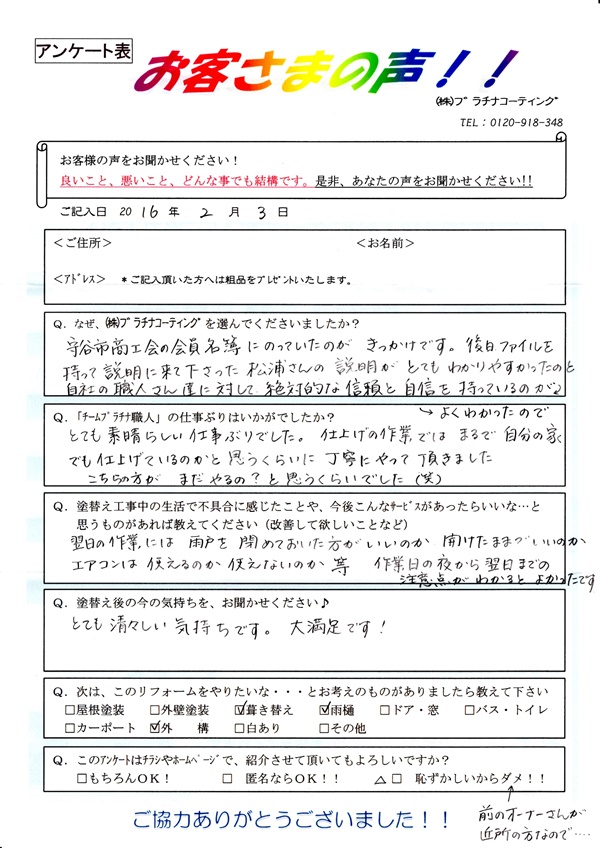 アンケート表
お客さまの声！！
(株)プラチナコーティング
TEL：0120-918-348
お客様の声をお聞かせください！
良いこと、悪いこと、どんな事でも結構です。是非、あなたの声をお聞かせください!!
ご記入日 2016年 2月 3日
＜ご住所＞ ＜お名前＞
＜アドレス＞ ＊ご記入頂いた方へは粗品をプレゼントいたします。
Q．なぜ、(株)プラチナコーティングを選んでくださいましたか？
守谷市商工会の会員名簿にのっていたのが きっかけです。後日ファイルを
持って説明に来て下さった松浦さんの説明が とてもわかりやすかったのと
自社の職人さん達に対して絶対的な信頼と自信を持っているのが
→よくわかったので
Q．「チームプラチナ職人」の仕事ぶりはいかがでしたか？
とても素晴らしい仕事ぶりでした。仕上げの作業では まるで自分の家
でも仕上げているのかと思うくらいに丁寧にやって頂きました
こちらの方が まだやるの？と思うくらいでした(笑)
Q．塗替え工事中の生活で不具合に感じたことや、今後こんなサービスがあったらいいな…と
思うものがあれば教えてください（改善して欲しいことなど）
翌日の作業には 雨戸を閉めておいた方がいいのか 開けたままでいいのか
エアコンは使えるのか使えないのか 等 作業日の夜から翌日までの
注意点がわかると よかったです
Q．塗替え後の今の気持ちを、お聞かせください♪
とても清々しい気持ちです。大満足です！
Q．次は、このリフォームをやりたいな・・・とお考えのものがありましたら教えて下さい
□屋根塗装 □外壁塗装 ☑葺き替え ☑雨樋 □ドア・窓 □バス・トイレ
□カーポート ☑外 構 □白あり □その他
Q．このアンケートはチラシやホームページで、紹介させて頂いてもよろしいですか？
□もちろんOK！ □ 匿名ならOK！！ △□ 恥ずかしいからダメ！！
ご協力ありがとうございました！！
前のオーナーさんが
近所の方なので‥‥